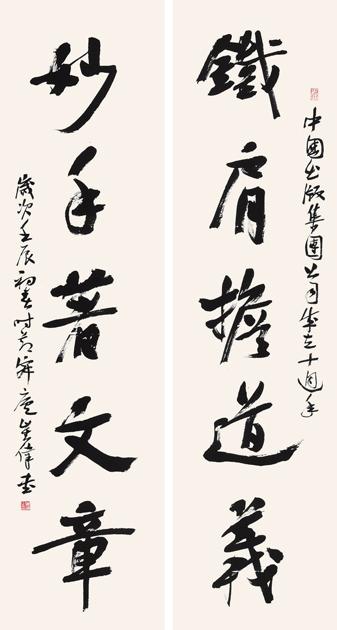 中國出版集團公司成立十週年
鐵肩擔道義
妙手著文章
歲次壬辰初春時節寐庵崔偉書